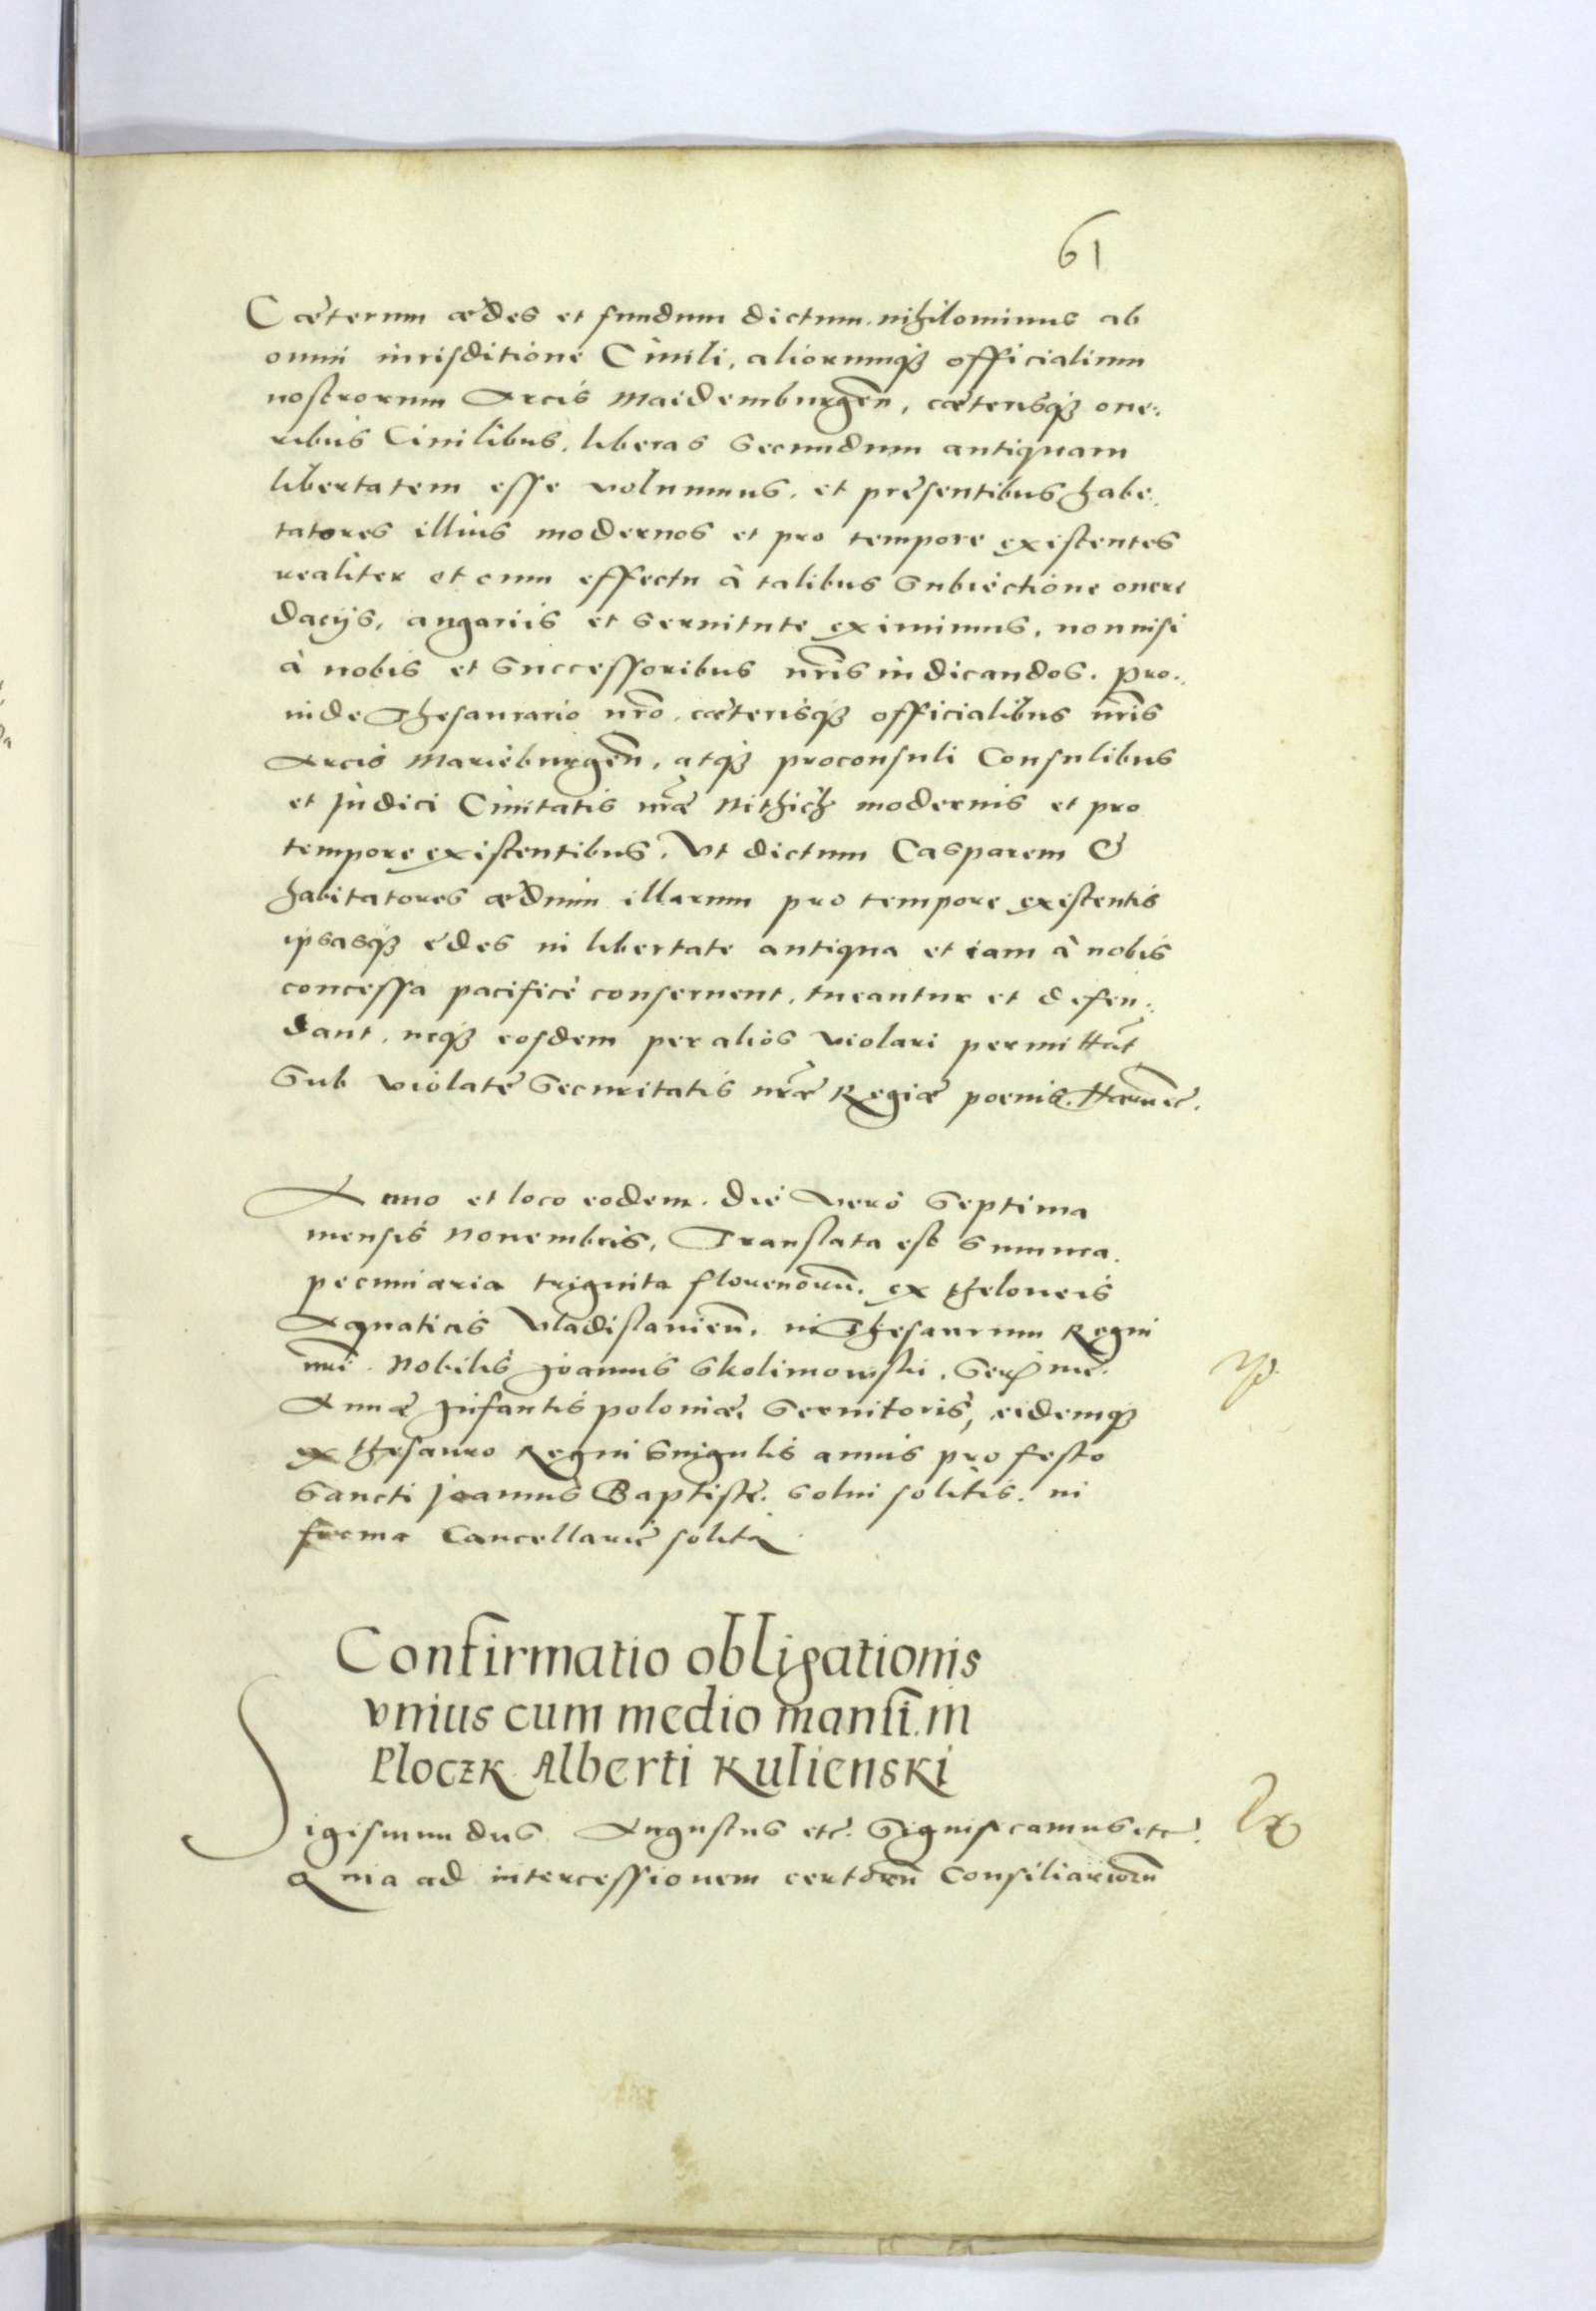 61
Cæterum ædes et fundum dictum. nihilominus ab
omni iurisditione Ciuili, aliorumq3 officialium
nostrorum Arcis Maidemburgeñ, cæterisq3 one:
ribus Ciuilibus, liberas secundum antiquam
libertatem esse volumus. et presentibus habe:
tatores illius modernos et pro tempore existentes
realiter et cum effectu à talibus subiectione onere
dacijs, angariis et seruitute eximimus, nonnisi
à nobis et successoribus nr̃is iudicandos. Pro:
inde Thesaurario nr̃o, cæterisq3 officialibus nr̃is
Arcis Marieburgeñ, atq3 proconsuli Consulibus
et Judici Ciuitatis nr̃æ Nithich modernis et pro
tempore existentibus. Vt dictum Casparem &
habitatores ædium illarum pro tempore existentis
ipsasq3 ędes in libertate antiqua et iam à nobis
concessa pacificè conseruent, tueantur et defen:
dant, neq3 eosdem per alios violari permittãt
Sub violatę securitatis nr̃æ Regiæ poenis.
Anno et loco eodem. die vero Septima
mensis Nouembris, Translata est summa
pecuniaria triginta florenorũ. ex theloneis
Aquaticis Vladislauieñ. in Thesaurum Regni
nr̃i. Nobilis Joannis Skolimowski,
Annæ Infantis poloniæ, Seruitoris, eidemq3
ex thesauro Regni singulis annis pro festo
Sancti Joannis Baptistę. solui solitis. in
forma Cancellarię solita
Confirmatio obligationis
vnius cum medio mansi. in
Ploczk Alberti Kulienski
Sigismundus Augustus etc. Significamus etc.
Quia ad intercessionem certorũ Consiliariorũ